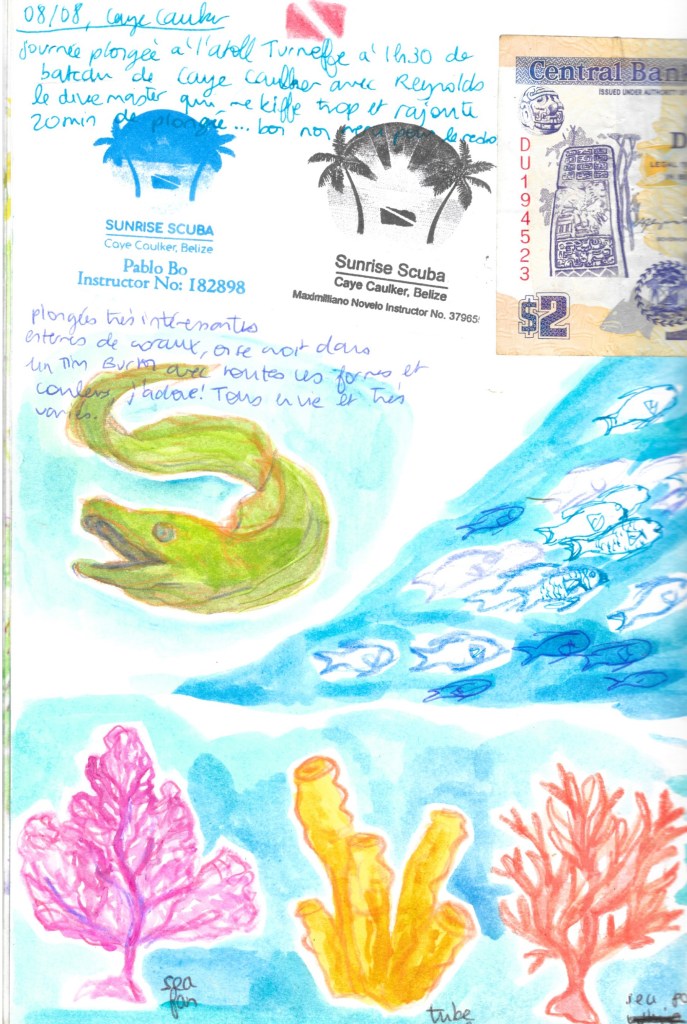 08/08, Caye Caulker
Journée plongée à l'atoll Turneffe à 1h30 de
bateau de Caye Caulker avec Reynolds
le dive master qui me kiffe trop et rajoute
20min de plongée... bon non
SUNRISE SCUBA
Caye Caulker, Belize
Pablo Bo
Instructor No: 182898
Sunrise Scuba
Caye Caulker, Belize
Maximilliano Novelo Instructor No. 37965
Central Ban
ISSUED UNDER AUTHORITY
DU194523
D
LEGAL
$2
plongées très intéressantes
de coraux, on se croit dans
un Tim Burton avec toutes ces formes et
couleurs, j'adore! Tous en vie et très
variés.
sea
fan
tube
sea